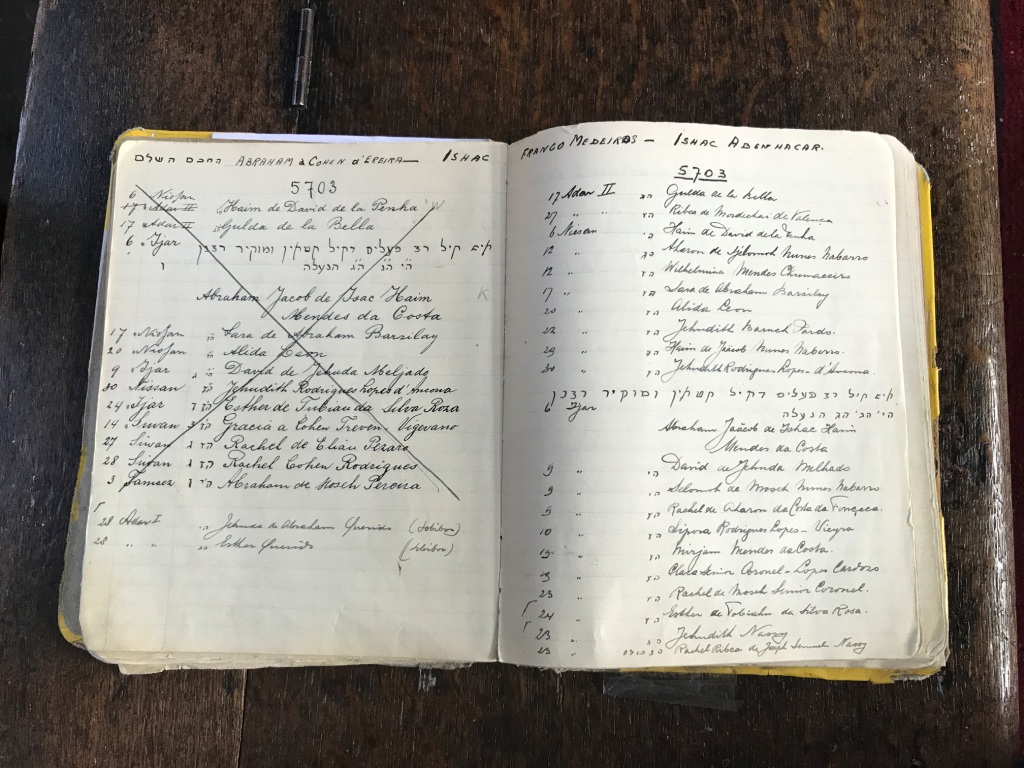 החכם השלם ABRAHAM a COHEN d'EREIRA— ISHAC
5703
6 Nissan
17 Adar II Haim de David de la Penha
17 Adar II Gulda de la Bella
6 Ijar א׳א קיל רצ פעלים דקיל קטאין ומוקיר רבנן
ה׳י הנ׳ ה׳ג הנעלה
Abraham Jacob de Isac Haim K
Mendes da Costa
17 Nissan Sara de Abraham Barzilay
20 Nissan Alida Leon
9 Ijar David de Jehuda Meljado
30 Nissan Jehudith Rodrigues Lopes d'Ancona
24 Ijar Esther de Tubian da Silva Roza
14 Siwan Gracia a Cohen Treven-Vigevano
27 Siwan Rachel de Eliau Pezaro
28 Siwan Rachel Cohen Rodrigues
3 Tamuez Abraham de Moseh Pereira
28 Adar I Jehuda de Abraham Querido (Sobibor)
28 " " Esther Querido (Sobibor)
FRANGO MEDEIROS — ISHAC ABENHACAR.
5703
17 Adar II Gulda de la Bella
27 " " Ribca de Mordechai de Valenca
6 Niesan Haim de David de la Penha
12 " Aharon de Selomoh Nunes Nabarro
12 " Wilhelmina Mendes Chumaceiro
17 " Sara de Abraham Barzilay
20 " Alida Leon
22 " Jehudith Baruch Pardo.
29 " Haim de Jaäcob Nunes Nabarro.
30 " Jehudith Rodrigues Lopes-d'Ancona.
א׳א קיל רצ פעלים דקיל קטאין ומוקיר רבנן
6 Ijar הי׳ הנ׳ הג הנעלה
Abraham Jaäcob de Ishac Haim
Mendes da Costa
9 " David de Jehuda Melhado
9 " Selomoh de Moseh Nunes Nabarro
9 " Rachel de Aharon da Costa da Fonseca.
10 " Sipora Rodrigues Lopes - Vieyra
19 " Mirjam Mendes da Costa.
" Clara Senior Coronel - Lopes Cardozo
23 " Rachel de Moseh Senior Coronel.
24 " Esther de Tobiahu da Silva Rosa.
23 " Jehudith Nassy
23 " Rachel Ribca de Joseph Semuel Nassy